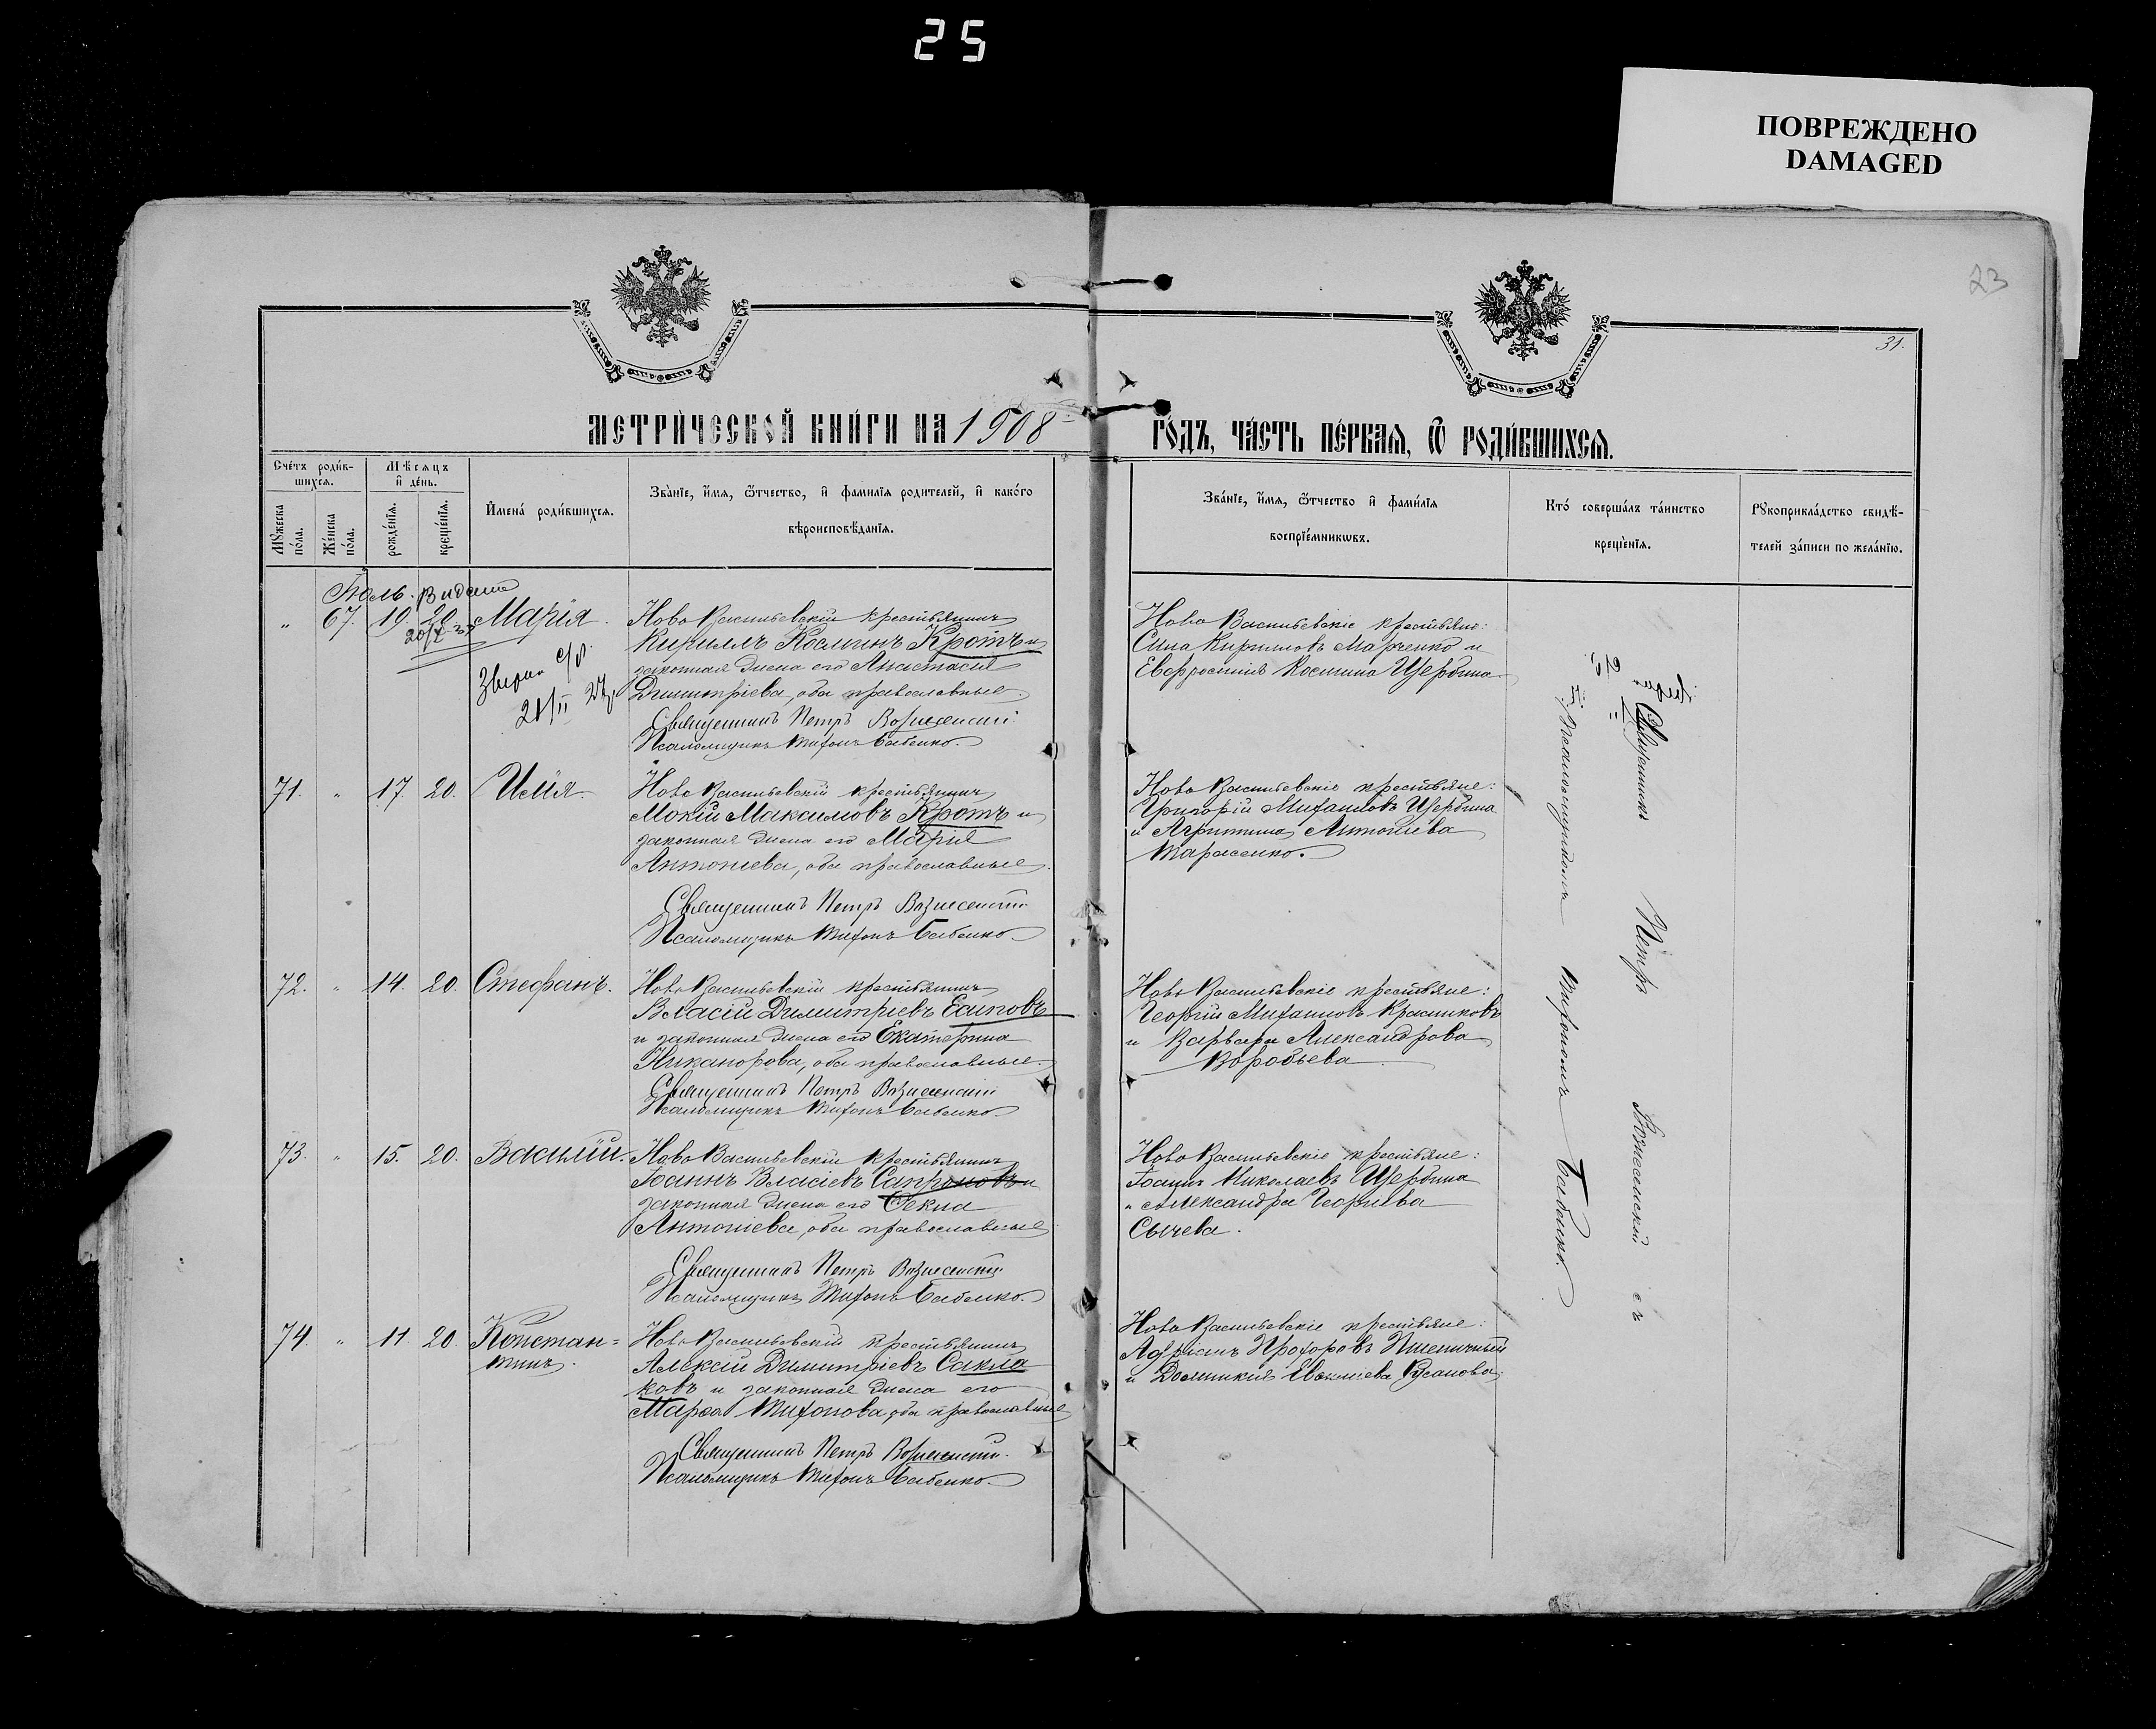 25
ПОВРЕЖДЕНО
DAMAGED
23
31.
МЕТРИ́ЧЕСКОЙ КНИ́ГИ НА 1908
ГО́ДЪ, ЧА́СТЬ ПЕ́РВАѦ, Ѿ РОДИ́ВШИХСѦ.
Сче́тъ роди́в-
шихсѧ.
Мѣсѧцъ
и҆ де́нь.
Мꙋжеска
по́ла.
Же́нска
по́ла.
рожде́нїѧ.
креще́нїѧ.
И҆мена́ роди́вшихсѧ.
Зва́нїе, и҆́мѧ, ѻ҆́тчество, и҆ фами́лїѧ родителей, и҆ како́го
вѣроисповѣ́данїѧ.
Зва́нїе, и҆́мѧ, ѻ҆́тчество и҆ фами́лїѧ
воспрїе́мникωвъ.
Кто́ соверша́лъ та́инство
креще́нїѧ.
Рꙋкоприкла́дство свидѣ́-
телей за́писи по жела́нїю.
Іюль.
" 67. 19. 20. Марія.
21/II 27
Ново Васильевскій крестьянинъ
Кириллъ Косминъ Кротъ и
законная жена его Анастасія
Димитріева, оба православные.
Священникъ Петръ Вознесенскій
Псаломщикъ Тихонъ Бабенко.
Ново Васильевскіе крестьяне:
Сила Кирилловъ Марченко и
Евфросинія Космина Щербина
71. " 17. 20. Илія.
Ново Васильевскій крестьянинъ
Мокій Максимовъ Кротъ и
законная жена его Марія
Антоніева, оба православные.
Священникъ Петръ Вознесенскій
Псаломщикъ Тихонъ Бабенко
Ново Васильевскіе крестьяне:
Григорій Михаиловъ Щербина
и Агриппина Антоніева
Тарасенко.
72. " 14. 20. Стефанъ.
Ново Васильевскій крестьянинъ
Власій Димитріевъ Есиповъ
и законная жена его Екатерина
Никанорова, оба православные.
Священникъ Петръ Вознесенскій
Псаломщикъ Тихонъ Бабенко.
Ново Васильевскіе крестьяне:
Георгій Михаиловъ Красниковъ
и Варвара Александрова
Воробьева
73. " 15. 20. Василій.
Ново Васильевскій крестьянинъ
Іоаннъ Власіевъ Сапроновъ и
законная жена его Ѳекла
Антоніева, оба православные
Священникъ Петръ Вознесенскій
Псаломщикъ Тихонъ Бабенко.
Ново Васильевскіе крестьяне:
Іоаннъ Николаевъ Щербина
и Александра Георгіева
Сычева.
74. " 11. 20. Констан=
тинъ.
Ново Васильевскій крестьянинъ
Алексій Димитріевъ Сакла
ковъ и законная жена его
Марѳа Тихонова, оба православные
Священникъ Петръ Вознесенскій.
Псаломщикъ Тихонъ Бабенко.
Ново Васильевскіе крестьяне:
Адріанъ Прохоровъ Пшеничный
и Домникія Русанова.
Священникъ Петръ Вознесенскій съ
Псаломщикомъ Тихономъ Бабенко.